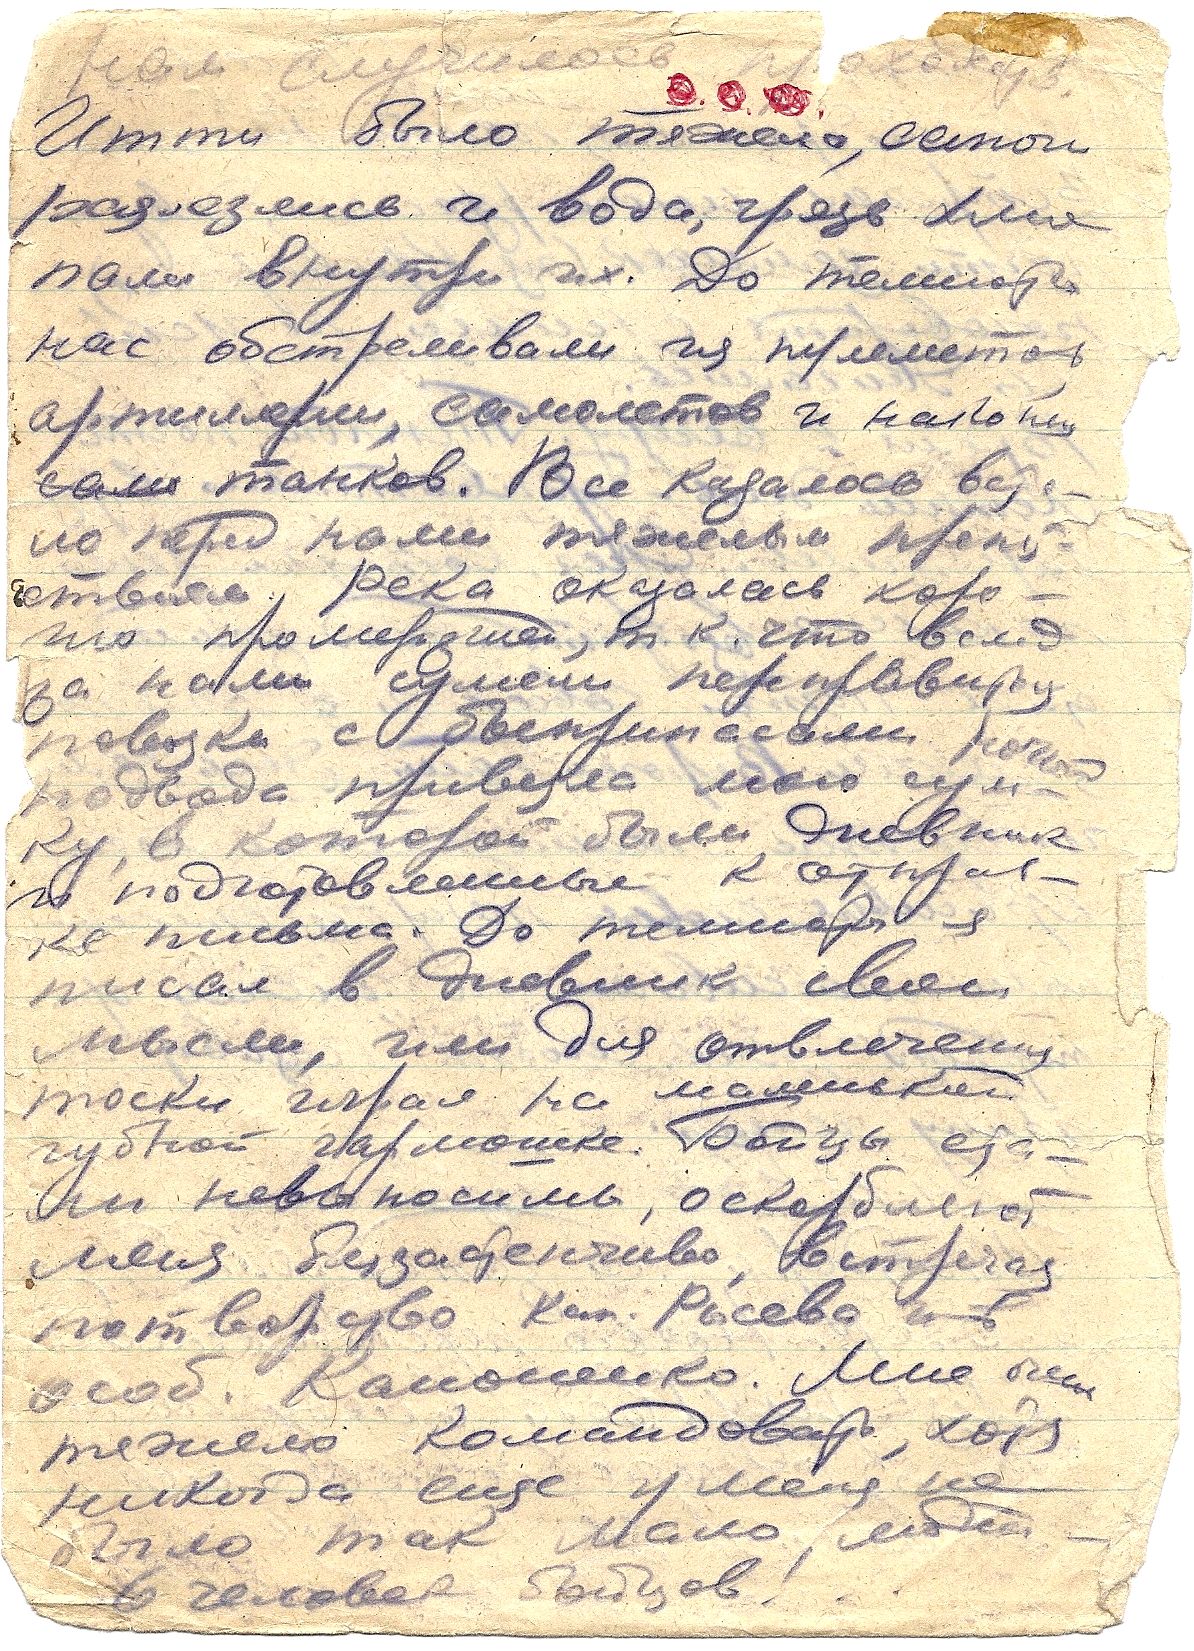 нам случилось проходить.
Итти было тяжело, сапоги
разлезлись и вода, грязь хлю
пали внутри их. До темноты
нас обстреливали из пулеметов
артиллерии, самолетов и наконец
сами танков. Все казалось вста-
ло перед нами тяжелым препят-
ствием. Река оказалась хоро-
шо промерзшей, т. к. что вслед
за нами сумели переправиться
повозки с боеприпасами
подвода привезла мою сум-
ку, в которой были дневник
и подготовленные к отправ-
ке письма. До темноты я
писал в дневник свои
мысли, или для отвлечения
тоски играл на маленькой
губной гармошке. Бойцы ста-
ли невыносимы, оскорбляют
меня беззастенчиво, встречая
потворство кап. Рысева и
особ. Каноненко. Мне очень
тяжело командовать, хотя
никогда еще у меня не
было так мало людей -
6 человек бойцов!